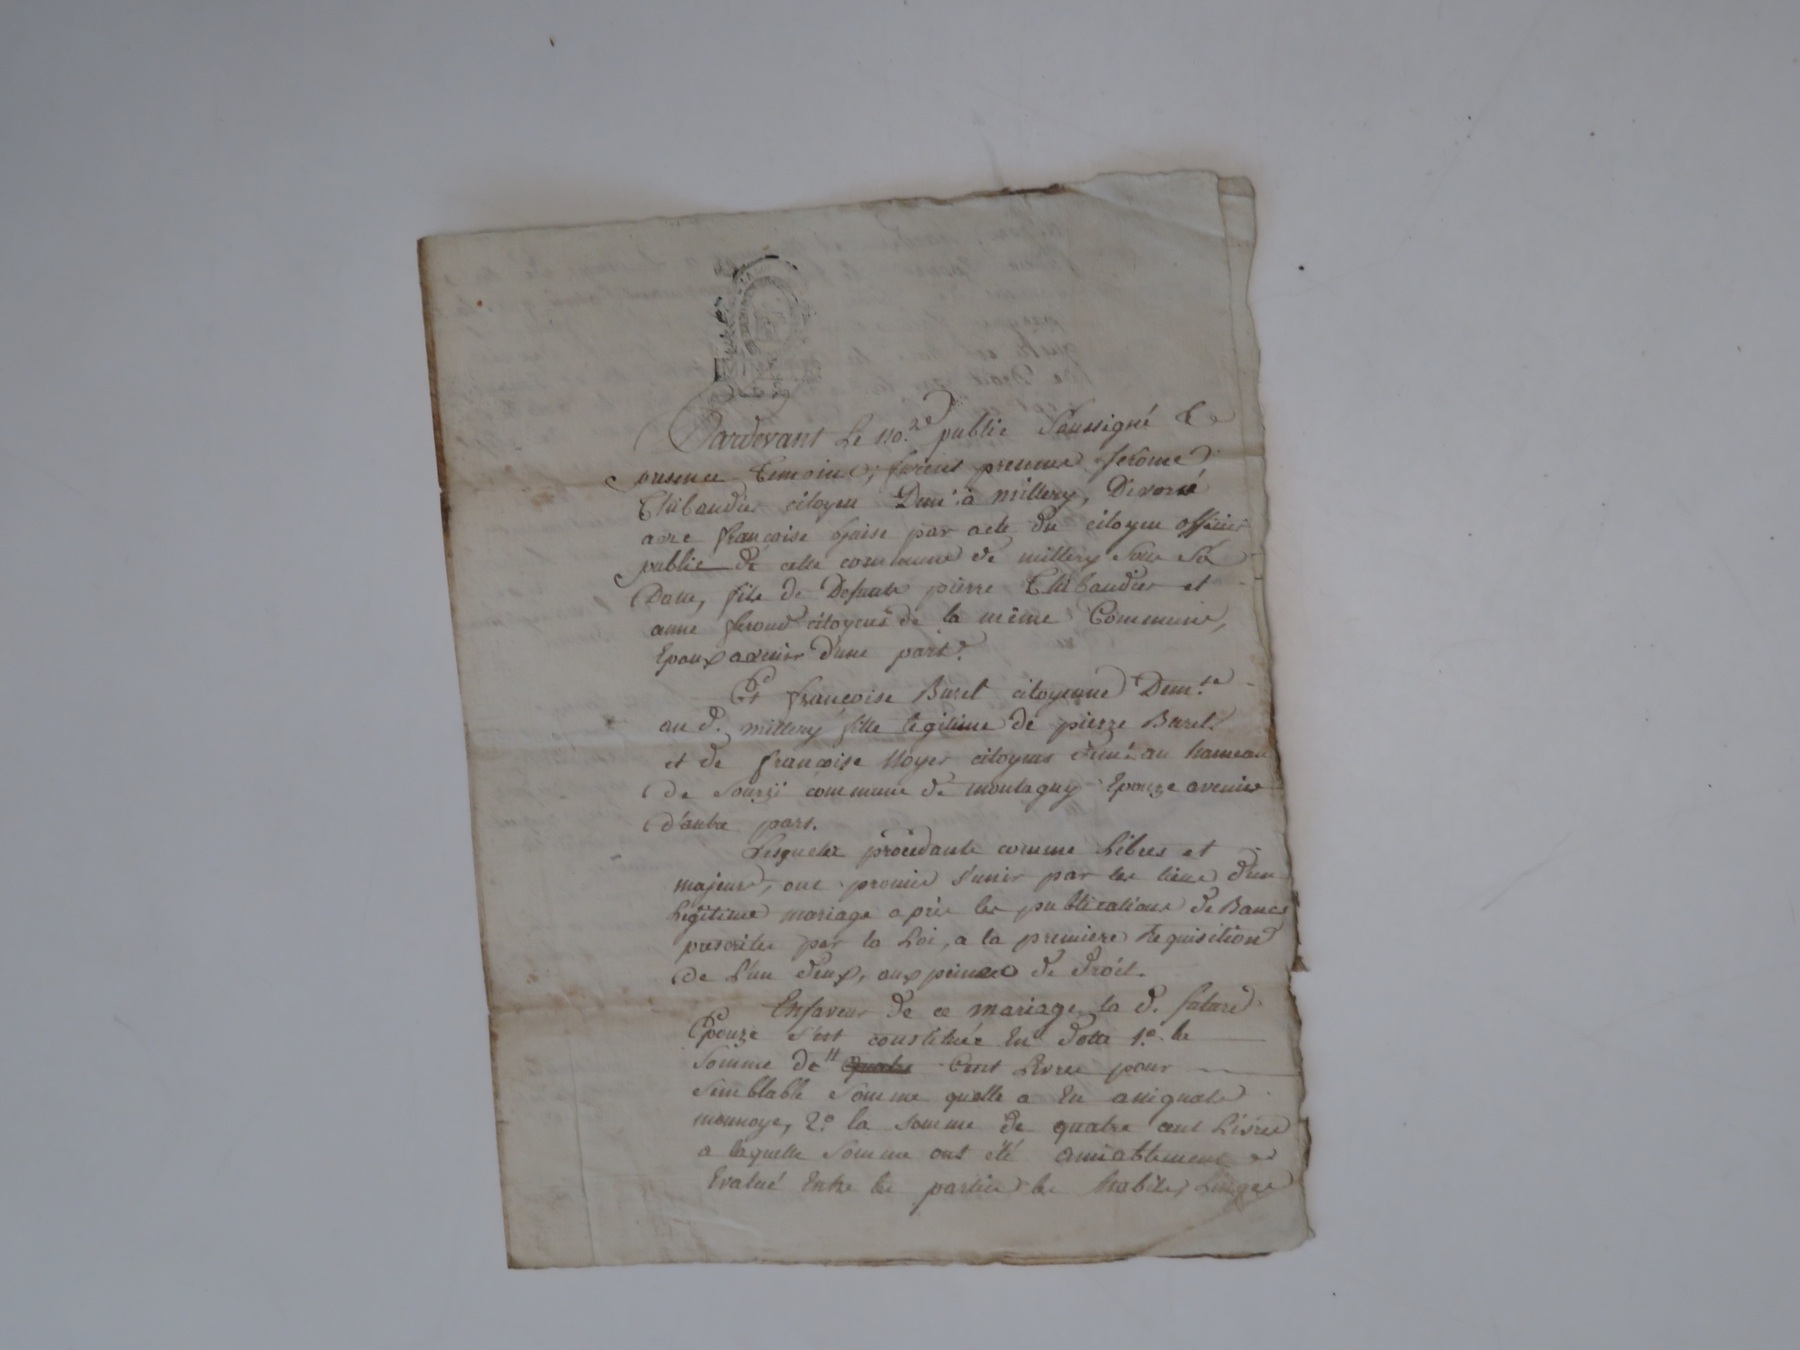 Pardevant Le no.re public Soussigné &
presence temoins, furent presens Jerôme
Thibaudier citoyen Dem.t à millery, Divorsé
avec françoise par acte du citoyen officier
public de cette commune de millery sous Sa
Datte, fils de Defunts pierre Thibaudier et
anne citoyens de la même Commune,
Epoux avenir d'une part.
Et françoise Burel citoyenne Dem.te
au d. millery fille legitime de pierre Burel
et de françoise citoyens Dem.t au hameau
de Sourzi commune de montagny Epouze avenir
d'autre part.
Lesquelz procédants comme Libres et
majeurs, ont promis s'unir par les liens d'un
Légitime mariage après les publications de Bancs
prescrites par la Loi, a la premiere Requisition
de L'un d'eux, aux peines de droit.
En faveur de ce mariage la d. future
Epouze s'est constituée En dotte 1.o la
Somme de Cent Livres pour
Semblable Somme quelle a En assignats
monnoye, 2.o la somme de quatre cent Livres
a laquelle Somme ont été amiablement
Evalué Entre les parties les habits, Linges